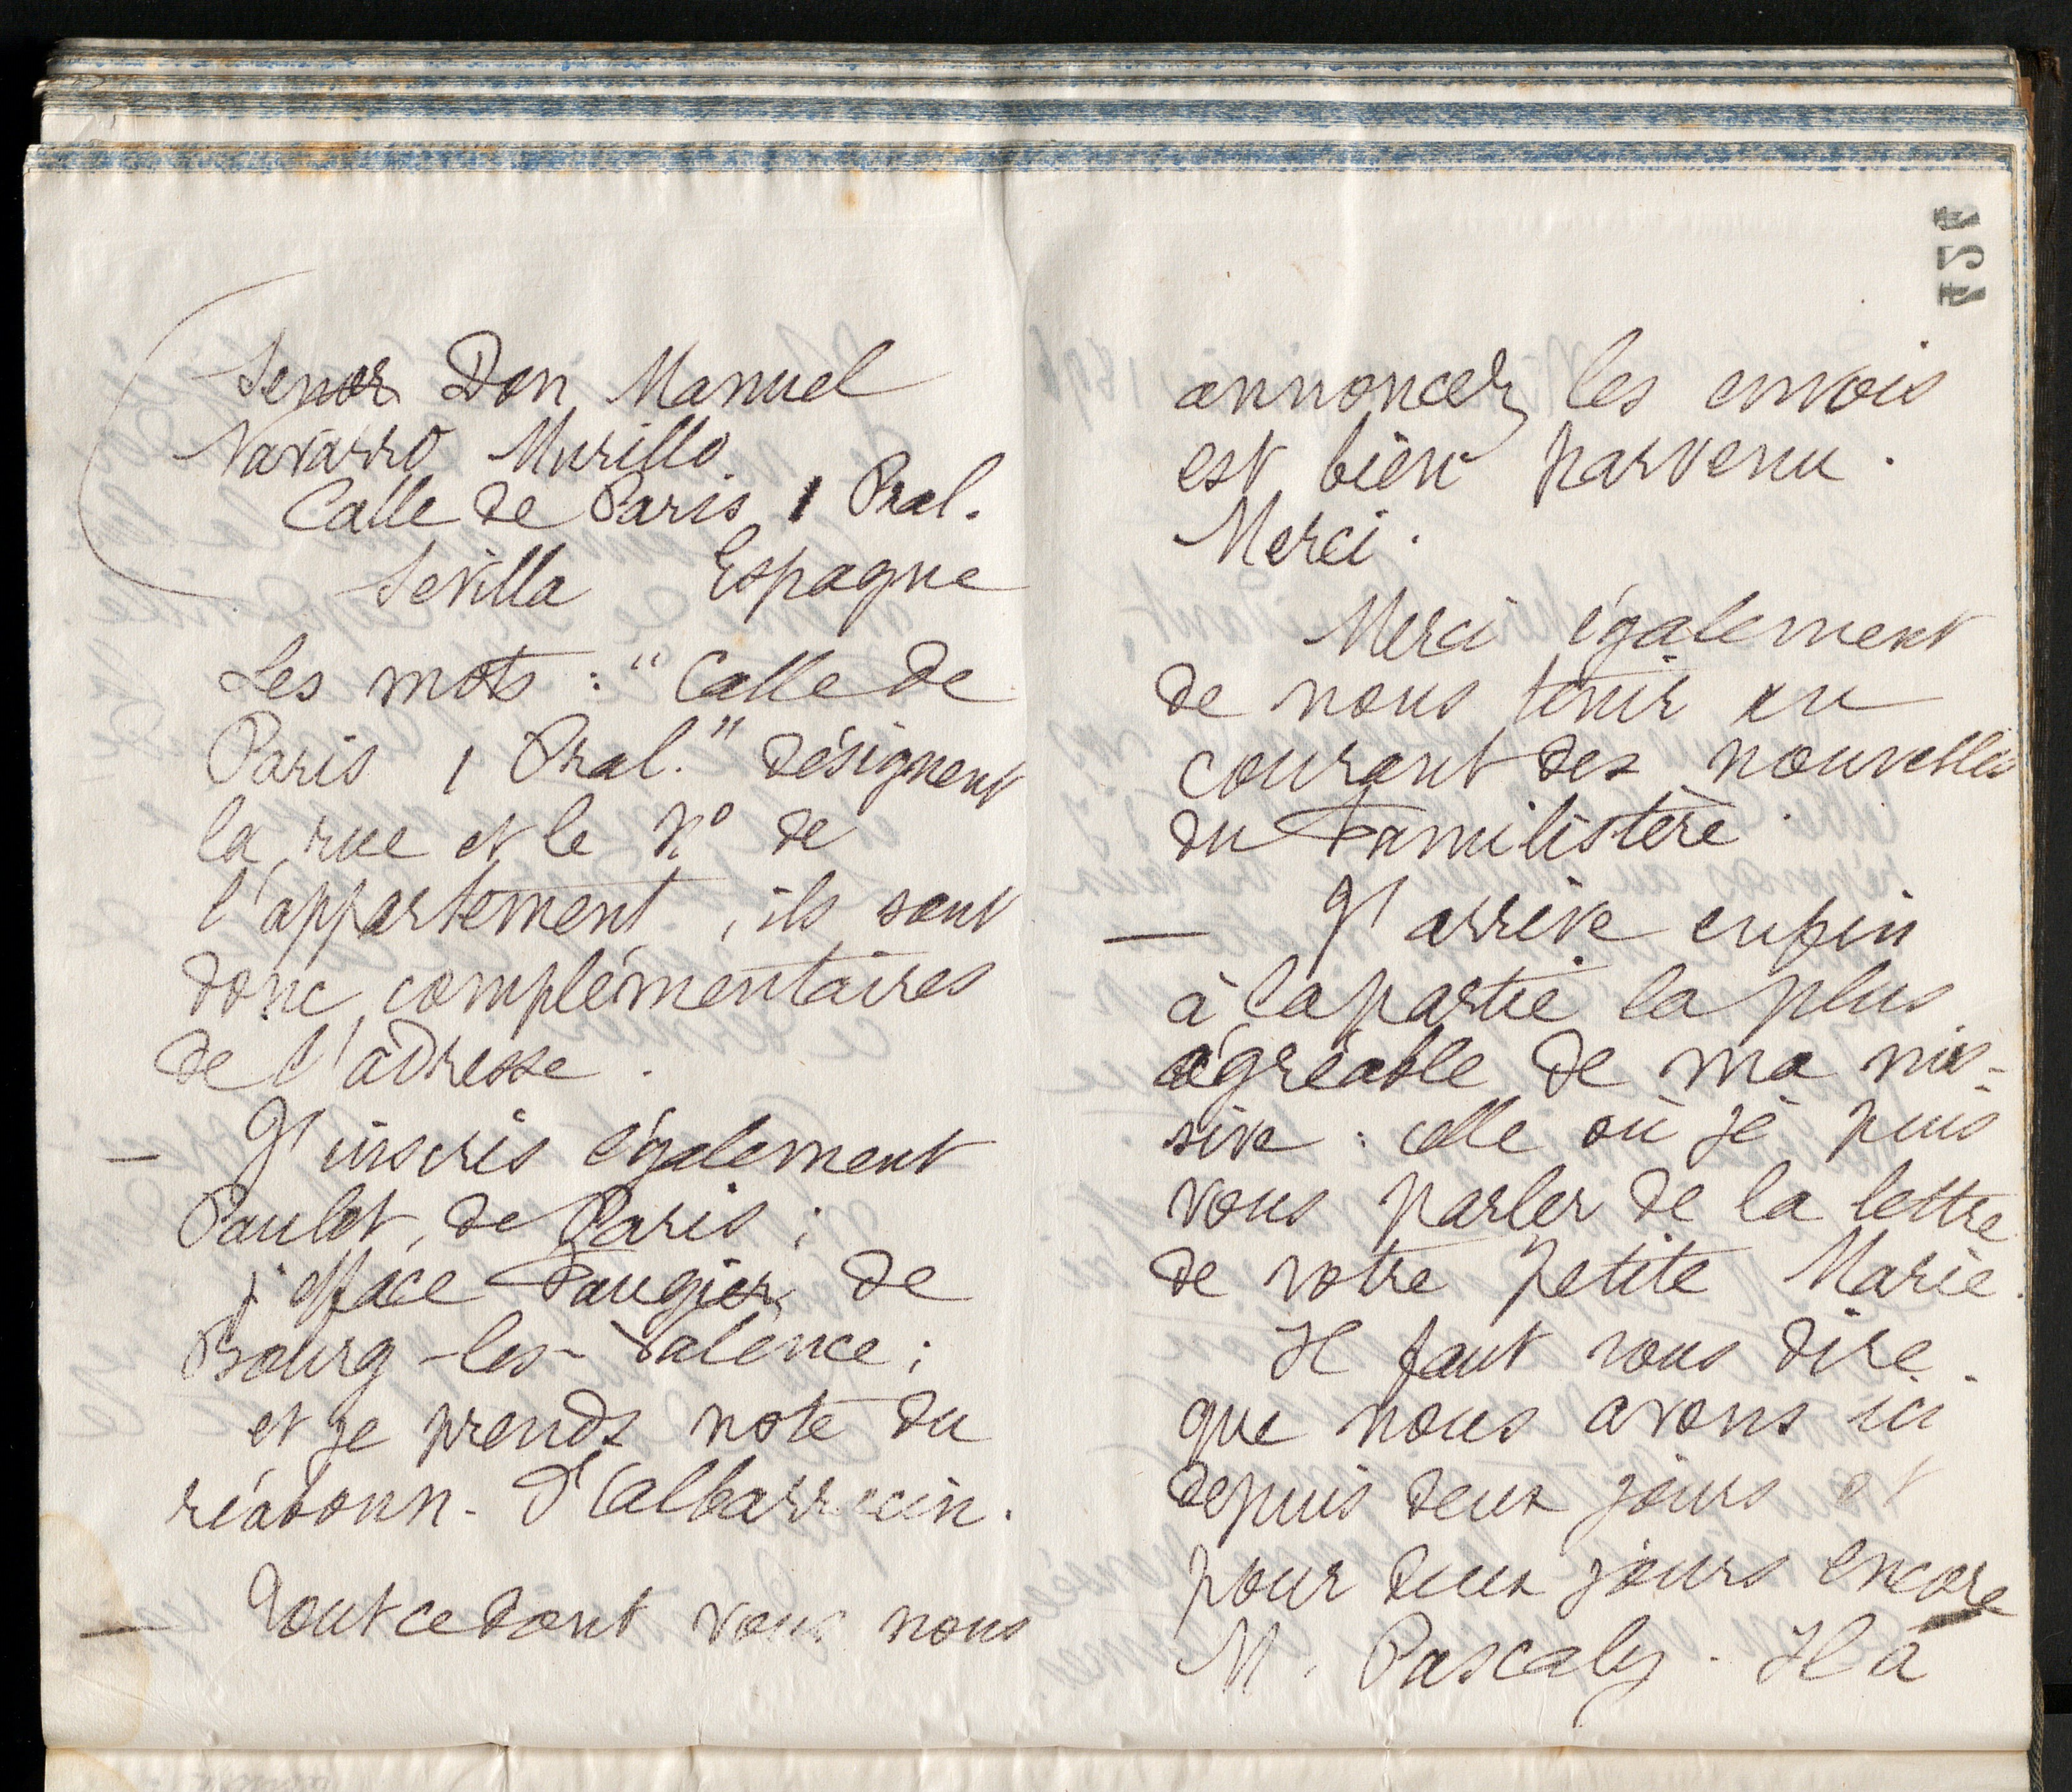 Senor Don Manuel
Navarro Murillo
Calle de Paris 1 Pral.
Sevilla Espagne
Les mots : "Calle de
Paris 1 Pral." désignent
la rue et le n° de
l'appartement, ils sont
donc complémentaires
de l'adresse.
— J'inscris également
Paulet, de Paris ;
j'efface Faugier de
Bourg-les-Valence ;
et je prends note du
réabonn. d'Calbarracin.
— Tout ce dont vous nous
annoncez les envois
est bien parvenu.
Merci.
Merci également
de nous tenir au
courant des nouvelles
du Familistère.
— J'arrive enfin
à la partie la plus
agréable de ma mis-
sive : celle où je puis
vous parler de la lettre
de votre petite Marie.
Il faut vous dire
que nous avons ici
depuis deux jours et
pour deux jours encore
M. Pascaly. Il a